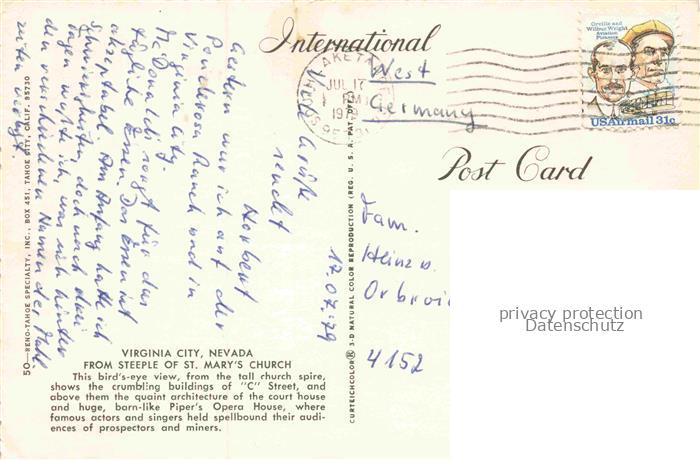 International
Post Card
Orville and
Wilbur Wright
Aviation
Pioneers
USAirmail 31c
JUL 17
West
Germany
Fam.
Heinz u.
4152
privacy protection
Datenschutz
17.07.79
Gestern war ich auf der
Ponderosa Ranch und in
Virginia City.
Mc Donalds sorgt für das
tägliche Essen. Das Essen ist
akzeptabel. Am Anfang hatte ich
Schwierigkeiten, doch nach drei
Tagen wußte ich, was sich hinter
den verschiedenen Namen der Mahl-
zeiten verbirgt.
Viele Grüße
sendet
Norbert
50—RENO-TAHOE SPECIALTY, INC., BOX 451, TAHOE CITY, CALIF. 95730
CURTEICHCOLOR® 3-D NATURAL COLOR REPRODUCTION (REG. U. S. A. PAT. OFF.)
VIRGINIA CITY, NEVADA
FROM STEEPLE OF ST. MARY'S CHURCH
This bird's-eye view, from the tall church spire,
shows the crumbling buildings of "C" Street, and
above them the quaint architecture of the court house
and huge, barn-like Piper's Opera House, where
famous actors and singers held spellbound their audi-
ences of prospectors and miners.